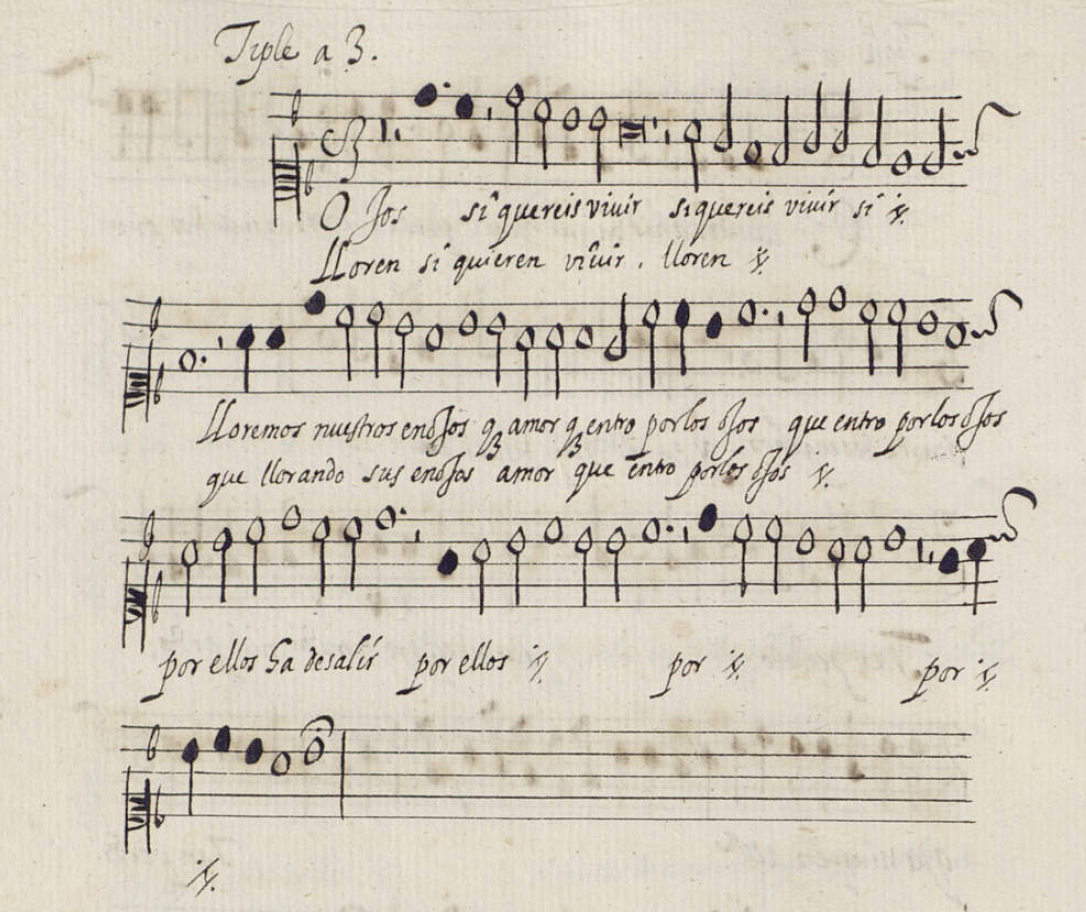 Tiple a 3.
O Jos si quereis viuir siquereis viuir si ij.
LLoren si quieren viuir. lloren ij.
LLoremos nuestros enoJos q amor q entro porlos oJos que entro porlos oJos
que llorando sus enoJos amor que entro porlos oJos ij.
por ellos ha desalir por ellos ij. por ij. por ij.
ij.